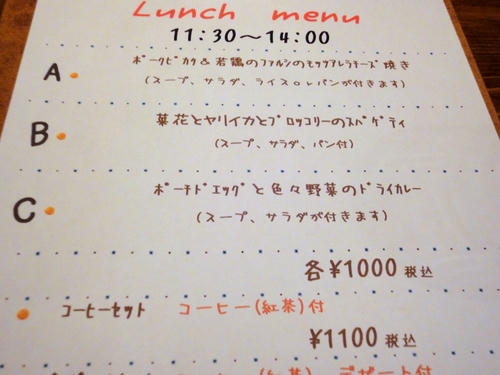 Lunch menu
11:30〜14:00
A ポークピカタ&若鶏のファルシのモッツアレラチーズ焼き
(スープ、サラダ、ライスorパンが付きます)
B 菜花とヤリイカとブロッコリーのスパゲティ
(スープ、サラダ、パン付)
C ポーチドエッグと色々野菜のドライカレー
(スープ、サラダが付きます)
各¥1000 税込
コーヒーセット コーヒー(紅茶)付
¥1100 税込
(紅茶) デザート付